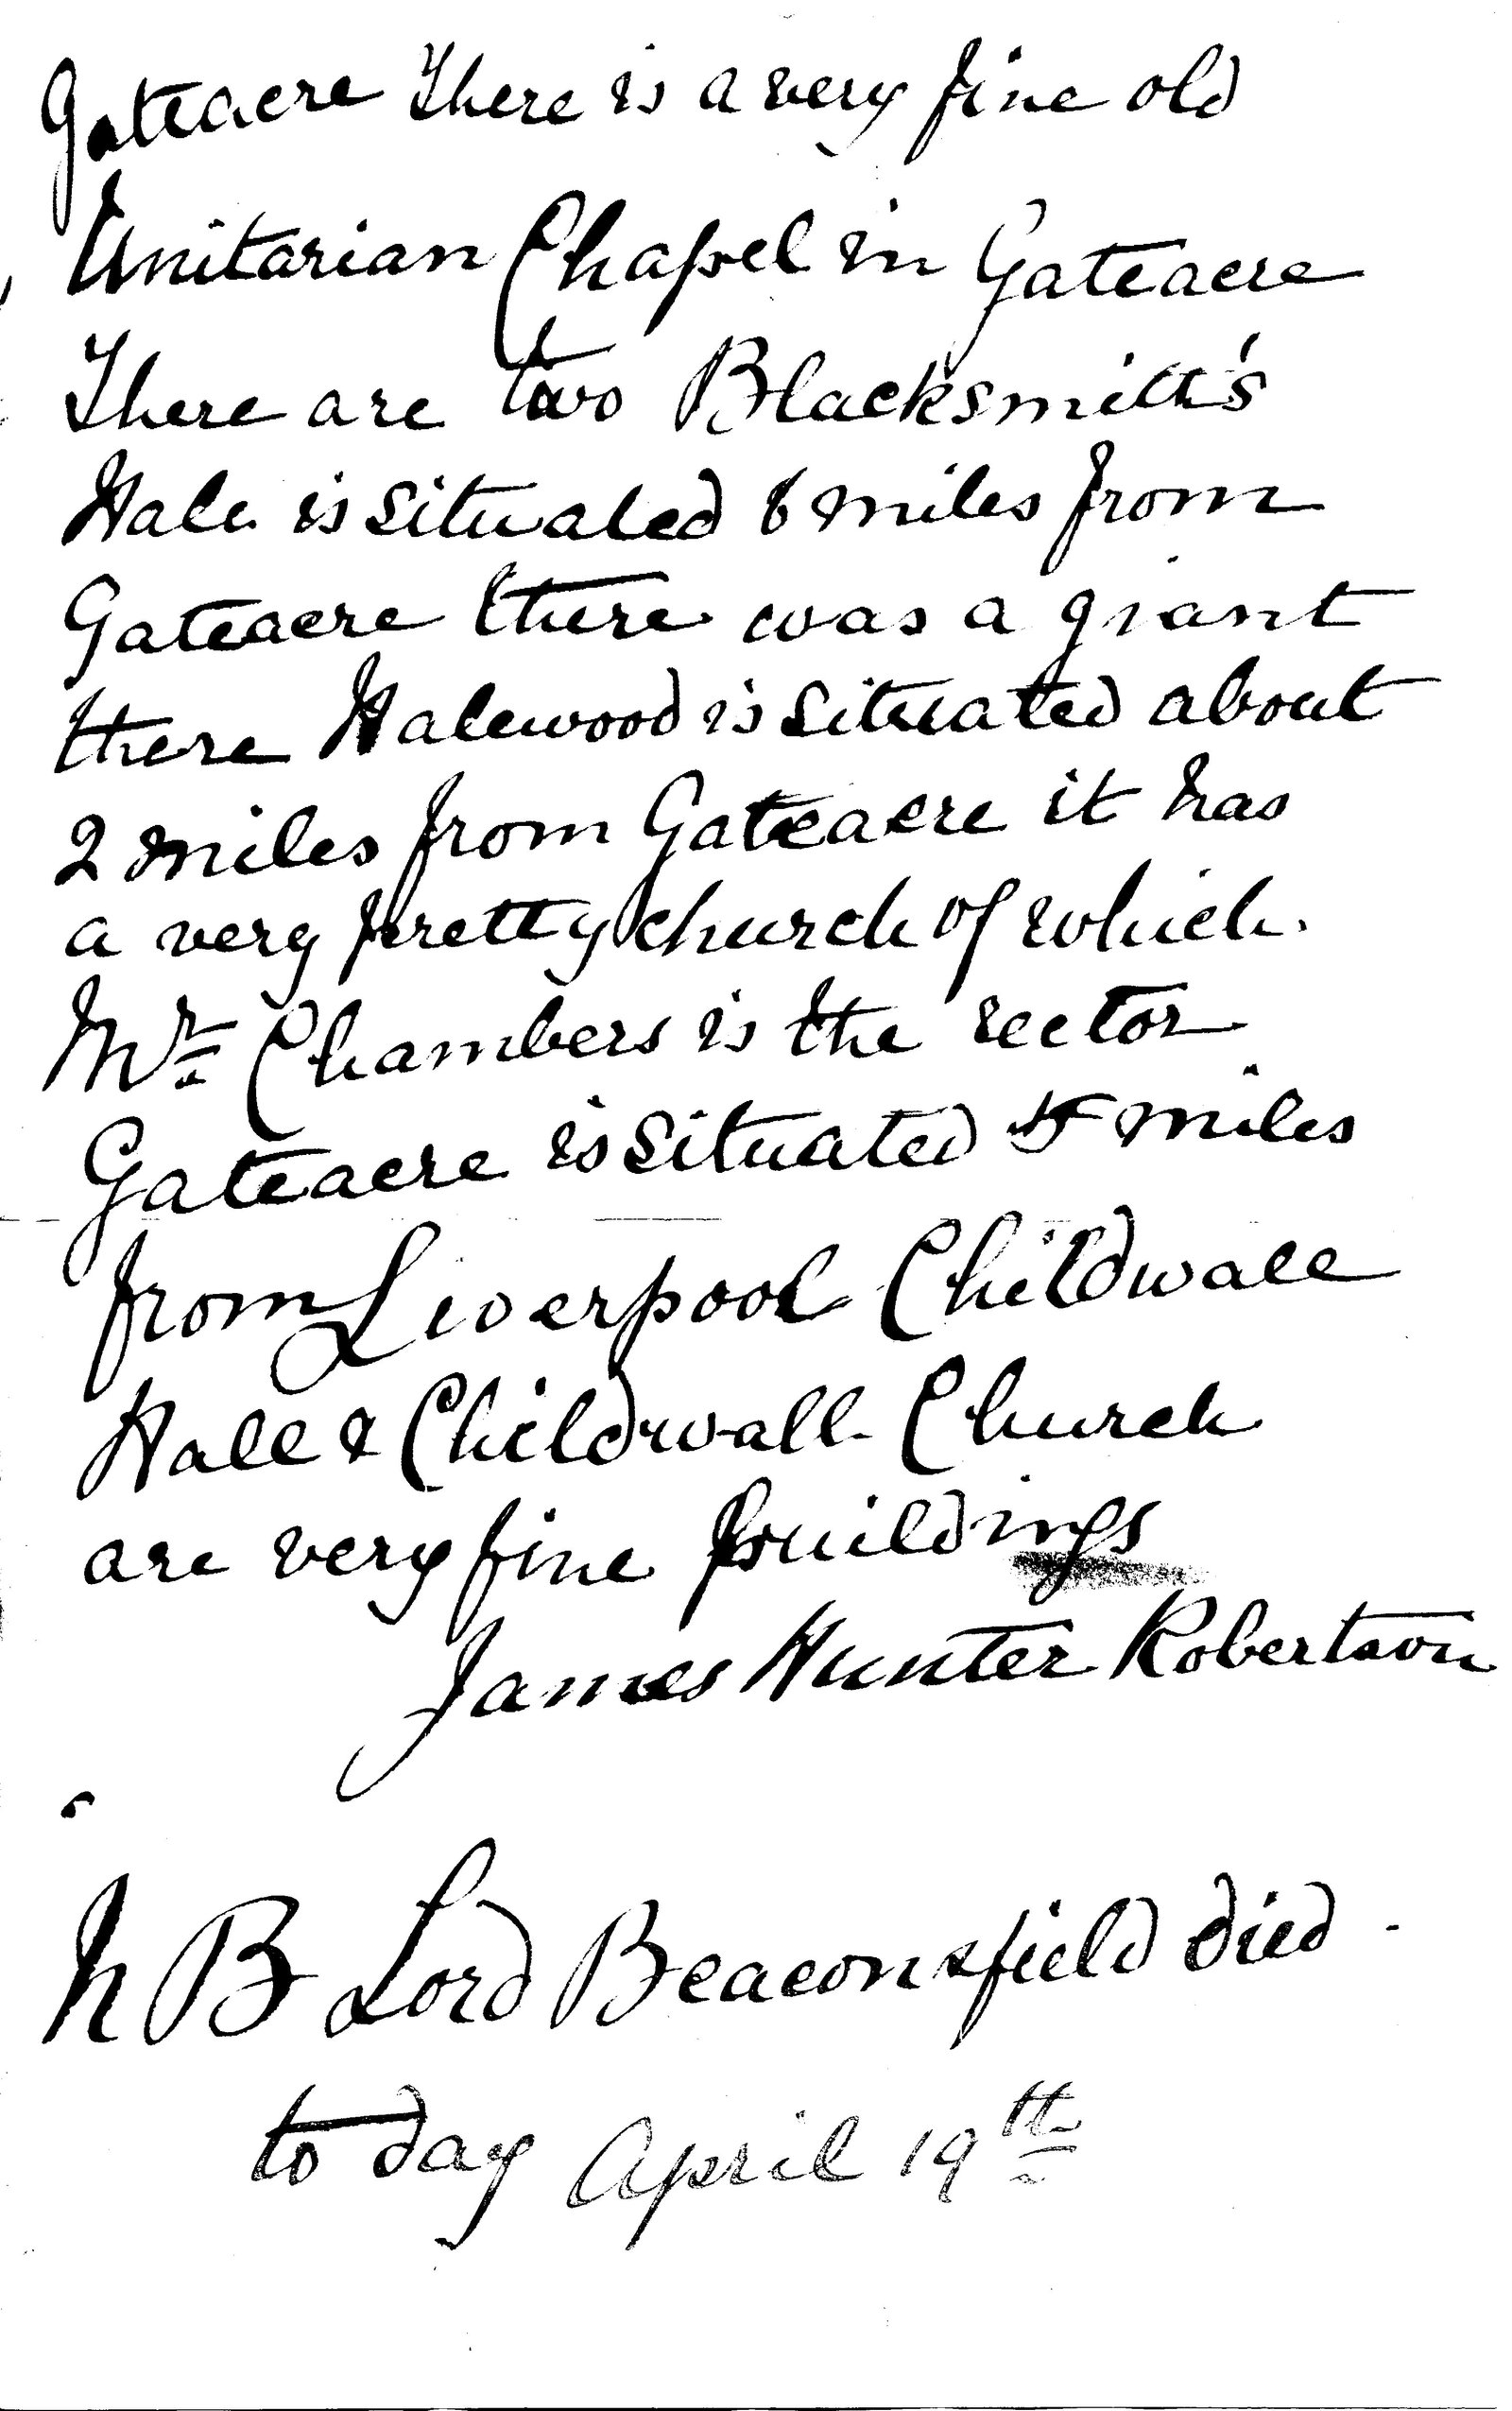 Gateacre There is a very fine old
Unitarian Chapel in Gateacre
There are two Blacksmith's
Hale is situated 6 miles from
Gateacre there was a giant
there Halewood is situated about
2 miles from Gateacre it has
a very pretty church of which
Mr Chambers is the rector
Gateacre is situated 5 miles
from Liverpool Childwall
Hall & Childwall Church
are very fine buildings
James Hunter Robertson
N B Lord Beaconsfield died
to day April 19th